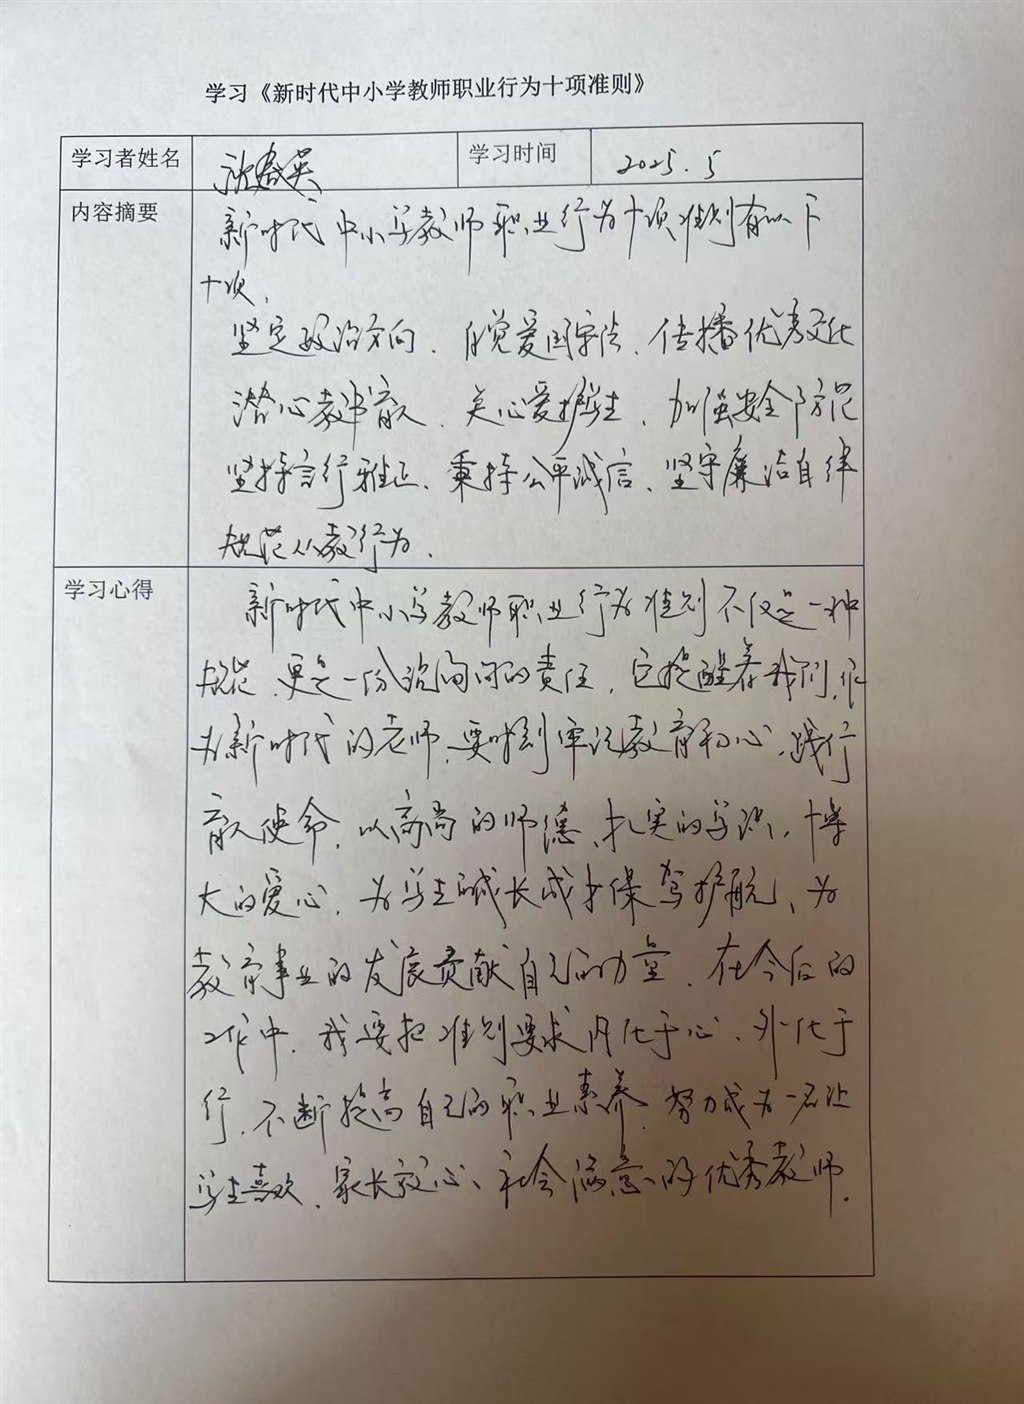 学习《新时代中小学教师职业行为十项准则》
学习者姓名 张春英 学习时间 2025.5
内容摘要
新时代中小学教师职业行为十项准则有以下
十项、
坚定政治方向、自觉爱国守法、传播优秀文化
潜心教书育人、关心爱护学生、加强安全防范
坚持言行雅正、秉持公平诚信、坚守廉洁自律
规范从教行为.
学习心得
新时代中小学教师职业行为准则不仅是一种
规范、更是一份沉甸甸的责任,它提醒着我们,作
为新时代的老师,要时刻牢记教育初心、践行
育人使命,以高尚的师德、扎实的学识、博
大的爱心,为学生成长成才保驾护航、为
教育事业的发展贡献自己的力量、在今后的
工作中,我要把准则要求内化于心、外化于
行,不断提高自己的职业素养、努力成为一名让
学生喜欢、家长放心、社会满意的优秀教师.